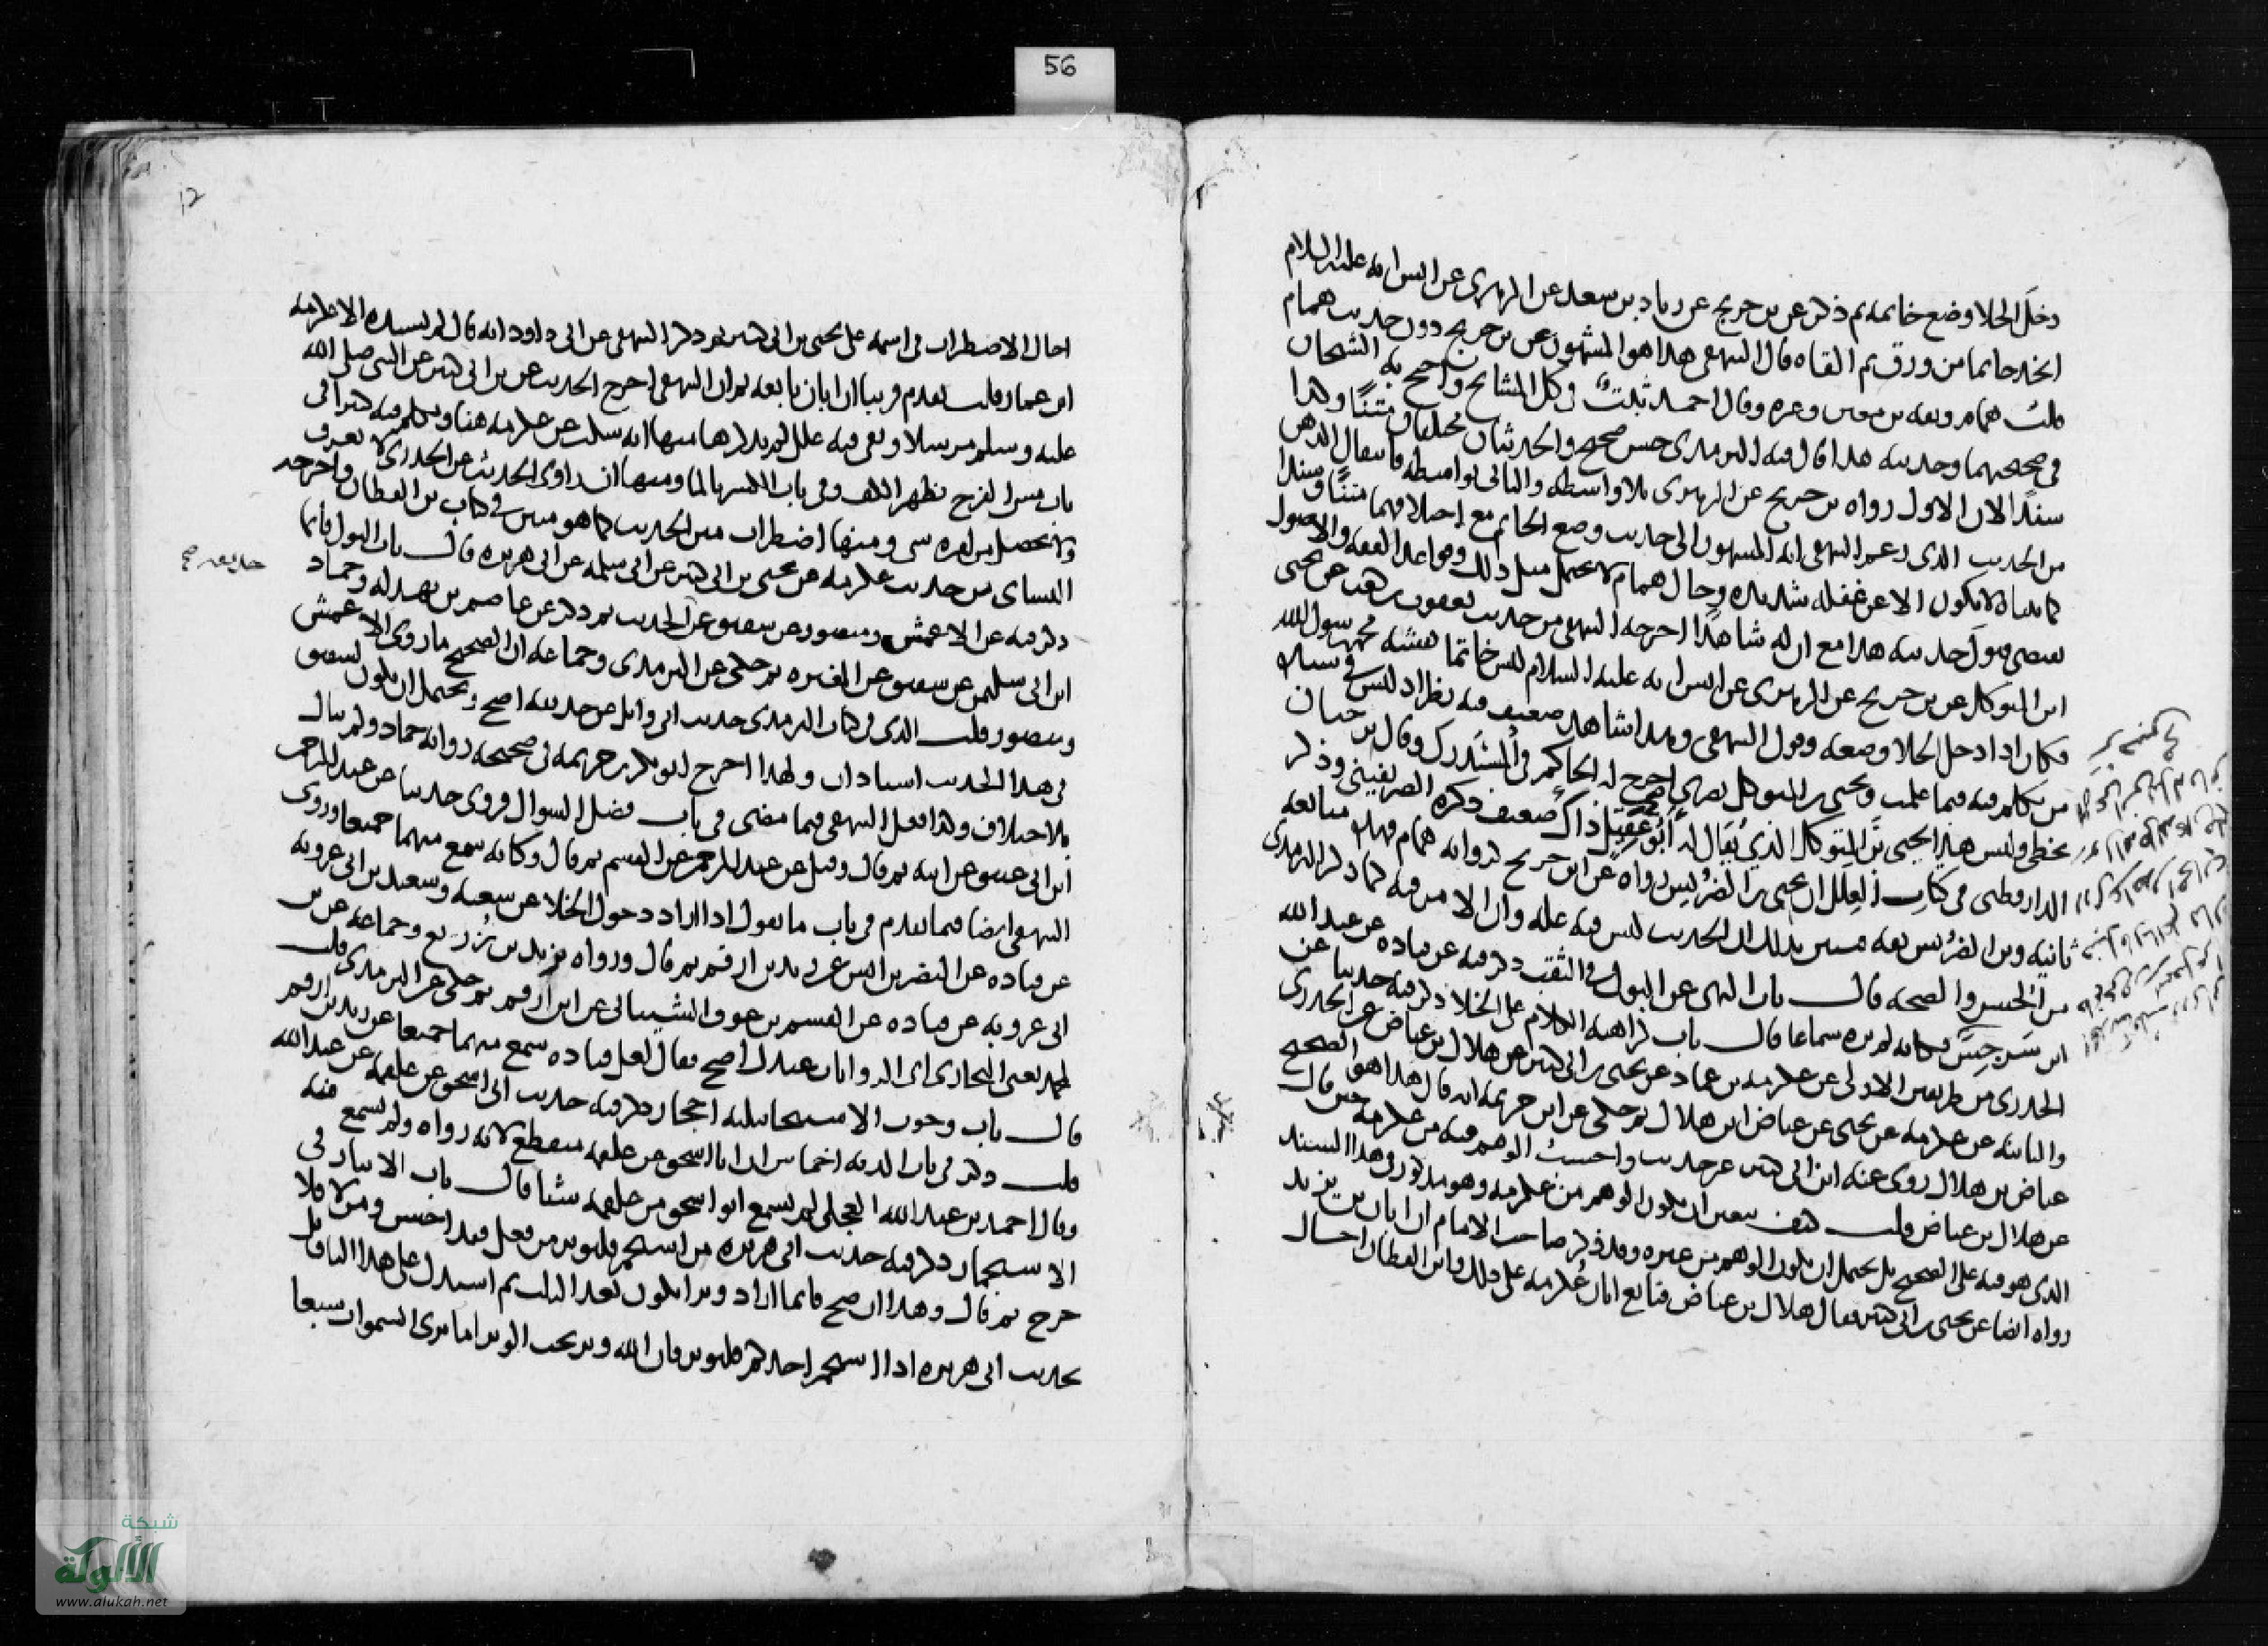 56
دخل الخلا وضع خاتمه ثم ذكر عن بن جريج عن زياد بن سعد عن الزهرى عن انس انه عليه السلام
اتخذ خاتما من ورق ثم القاه قال البيهقى هذا هو المشهور عن بن جريج دون حديث همام
قلت همام وثقه بن معين وغيره وقال احمد ثبت فى كل المشايخ واحتج به الشيخان
فى صحيحهما وحديثه هذا قال فيه الترمذى حسن صحيح والحديثان مختلفان متنًا وكذا
سندًا لان الاول رواه بن جريج عن الزهرى بلا واسطة والثانى بواسطه فانتقال الذهن
من الحديث الذى زعم البيهقى انه المشهور الى حديث وضع الخاتم مع اختلافهما متنًا وسندا
كما بيناه لا يكون الا عن غفله شديده وحال همام لا يحتمل مثل ذلك وقواعد الفقه والاصول
تقتضى قبول حديثه هذا مع ان له شاهدًا اخرجه البيهقى من حديث يعقوب بن كعب عن يحيى
ابن المتوكل عن بن جريج عن الزهرى عن انس انه عليه السلام لبس خاتما نقشه محمد رسول الله
فكان اذا دخل الخلا وضعه وقول البيهقى وهذا شاهد ضعيف فيه نظر اذ ليس فى سنده
من تكلم فيه فيما علمت ويحيى بن المتوكل بصرى اخرج له الحاكم فى المستدرك وقال بن حبان
يخطى وليس هذا يحيى بن المتوكل الذى يقال له ابو عقيل ذاك ضعيف ذكره الصريفينى وذكر
الدارقطنى فى كتاب العلل ان يحيى بن الضريس رواه عن ابن جريج كروايه همام فهذه متابعه
ثانيه وبن الضريس ثقه فتبين بذلك ان الحديث ليس فيه عله وان الامر فيه كما ذكر الترمذى
من الحسن والصحه قال باب النهى عن البول فى الثقب ذكر فيه عن قتاده عن عبد الله
ابن سرجس فكانه لم يره سماعا قال باب كراهيه الكلام على الخلا ذكر فيه حديثا عن
الخدرى من طريقين الاولى عن عكرمه بن عمار عن يحيى بن ابى كثير عن هلال بن عياض عن الخدرى
والثانيه عن عكرمه عن يحيى عن عياض ابن هلال ثم حكى عن ابن خزيمه انه قال هذا هو الصحيح
عياض بن هلال روى عنه ابن ابى كثير غير حديث واحسب الوهم فيه من عكرمه حين قال
عن هلال بن عياض قلت كيف يتعين ان يكون الوهم من عكرمه وهو مذكور فى هذا السند
الذى هو فيه على الصحيح بل يحتمل ان يكون الوهم من غيره وقد ذكر صاحب الامام ان ابان بن يزيد
رواه ايضا عن يحيى بن ابى كثير فقال هلال بن عياض فتابع ابان عكرمه على ذلك وابن القطان احال
12
احال الاضطراب فى اسمه على يحيى بن ابى كثير ثم ذكر البيهقى عن ابى داود انه قال لم يسنده الا عكرمه
ابن عمار قلت تقدم قريبا ان ابان تابعه ثم ان البيهقى اخرج الحديث عن بن ابى كثير عن النبى صلى الله
عليه وسلم مرسلا وبقى فيه علل لم يذكرها منها انه سكت عن عكرمه هنا وتكلم فيه كثيرا فى
باب مس الفرج بظهر الكف وفى باب الكسر بالما ومنها ان راوى الحديث عن الخدرى لا يعرف
ولا يحصل من امره شى ومنها اضطراب متن الحديث كما هو مبين فى كتاب بن القطان واخرجه
النساى من حديث عكرمه عن يحيى بن ابى كثير عن ابى سلمه عن ابى هريره قال باب البول قايما
ذكر فيه عن الاعمش ومنصور عن شقيق عن الحديث ثم ذكر عن عاصم بن بهدله وحماد
حذيفه صح
ابن ابى سليمن عن شقيق عن المغيره ثم حكى عن الترمذى وجماعه ان الصحيح ما روى الاعمش
ومنصور قلت الذى فى كتاب الترمذى حديث ابى وائل عن حذيفه اصح ويحتمل ان يكون لشقيق
فى هذا الحديث اسنادان ولهذا اخرج ابو بكر بن خزيمه فى صحيحه روايه حماد ولم يبال
بالاختلاف وكذا فعل البيهقى فيما مضى فى باب فضل السواك فروى حديثا عن عبد الرحمن
ابن ابى عتيق عن ابيه ثم قال وقيل عن عبد الرحمن عن القسم ثم قال وكانه سمع منهما جميعا وروى
البيهقى ايضا فيما تقدم فى باب ما يقول اذا اراد دخول الخلا عن شعبه وسعيد بن ابى عروبه
عن قتاده عن النضر بن انس عن زيد بن ارقم ثم قال ورواه يزيد بن زريع وجماعه عن بن
ابى عروبه عن قتاده عن القسم بن عوف الشيبانى عن ابن ارقم ثم حكى عن الترمذى قلت
لمحمد يعنى البخارى اى الروايات عندك اصح فقال لعل قتاده سمع منهما جميعا عن زيد بن ارقم
قال باب وجوب الاستنجا بثلثه احجار ذكر فيه حديث ابى اسحق عن علقمه عن عبد الله
قلت ذكر فى باب الديه اخماس ان ابا اسحق عن علقمه منقطع لانه رواه ولم يسمع منه
وقال احمد بن عبد الله العجلى لم يسمع ابو اسحق من علقمه شيئا قال باب الايتار فى
الاستجمار ذكر فيه حديث ابى هريره من استجمر فليوتر من فعل فقد احسن ومن لا فلا
حرج ثم قال وهذا ان صح فانما اراد وترا يكون بعد الثلث ثم استدل على هذا التاويل
بحديث ابى هريره اذا استجمر احدكم فليوتر فان الله وتر يحب الوتر اما ترى السموات سبعا
شبكة
الألوكة
www.alukah.net